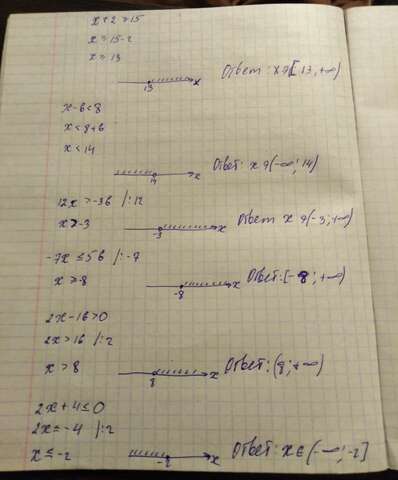 x+2 ≥ 15
x ≥ 15-2
x ≥ 13
13 x Ответ: x ∋ [13; +∞)
x-6<8
x<8+6
x<14
14 x Ответ: x ∋ (-∞; 14)
12x > -36 |:12
x>-3
-3 x Ответ x ∋ (-3; +∞)
-7x ≤ 56 |:-7
x ≥ -8
-8 x Ответ: [-8; +∞)
2x-16>0
2x>16 |:2
x > 8
8 x Ответ: (8; +∞)
2x+4 ≤ 0
2x = -4 |:2
x ≤ -2
-2 x Ответ: x ∈ (-∞; -2]